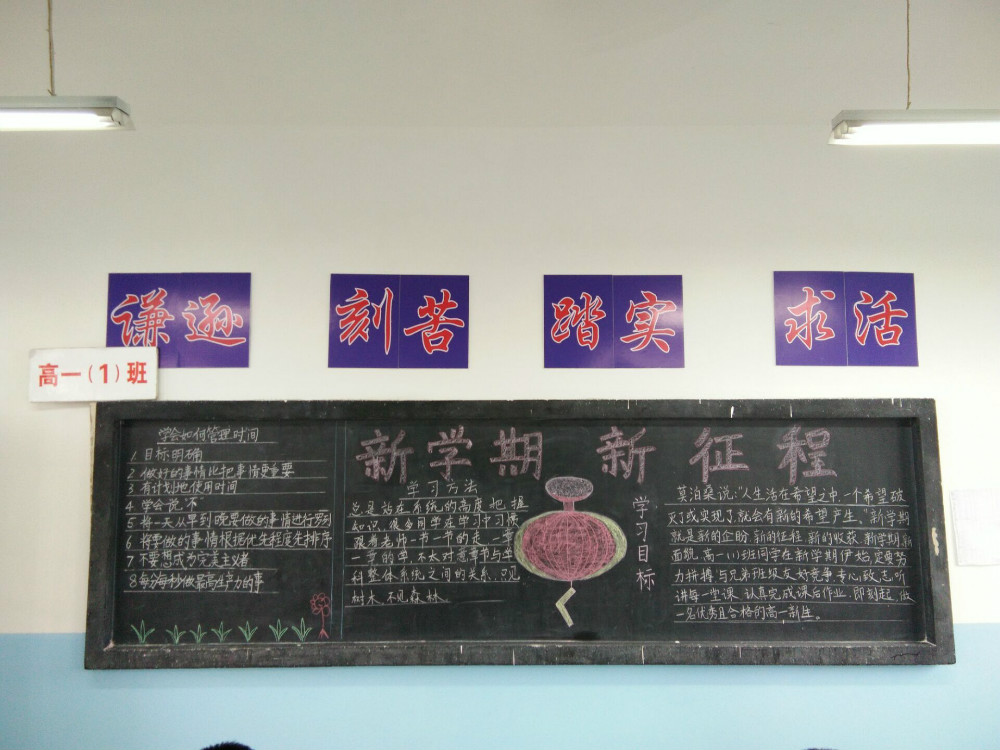 谦逊
刻苦
踏实
求活
高一（1）班
新学期 新征程
学会如何管理时间
1 目标明确
2 做好的事情比把事情更重要
3 有计划地使用时间
4 学会说.不
5 将一天从早到晚要做的事情进行罗列
6 将要做的事情根据优先程度先排序
7 不要想成为完美主义者
8 每分每秒做最高生产力的事
学习方法
总是站在系统的高度把握
知识,很多同学在学习中习惯
跟着老师一节一节的走,一章
一章的学,不太对意章节与学
科整体系统之间的关系,只见
树木,不见森林。
学习目标
莫泊桑说:"人生活在希望之中,一个希望破
灭了或实现了,就会有新的希望产生。"新学期
就是新的企盼,新的征程,新的收获,新学期,新
面貌,高一(1)班同学在新学期伊始,定要努
力拼搏,与兄弟班级友好竞争,专心致志听
讲每一堂课,认真完成课后作业,即刻起,做
一名优秀且合格的高一新生。